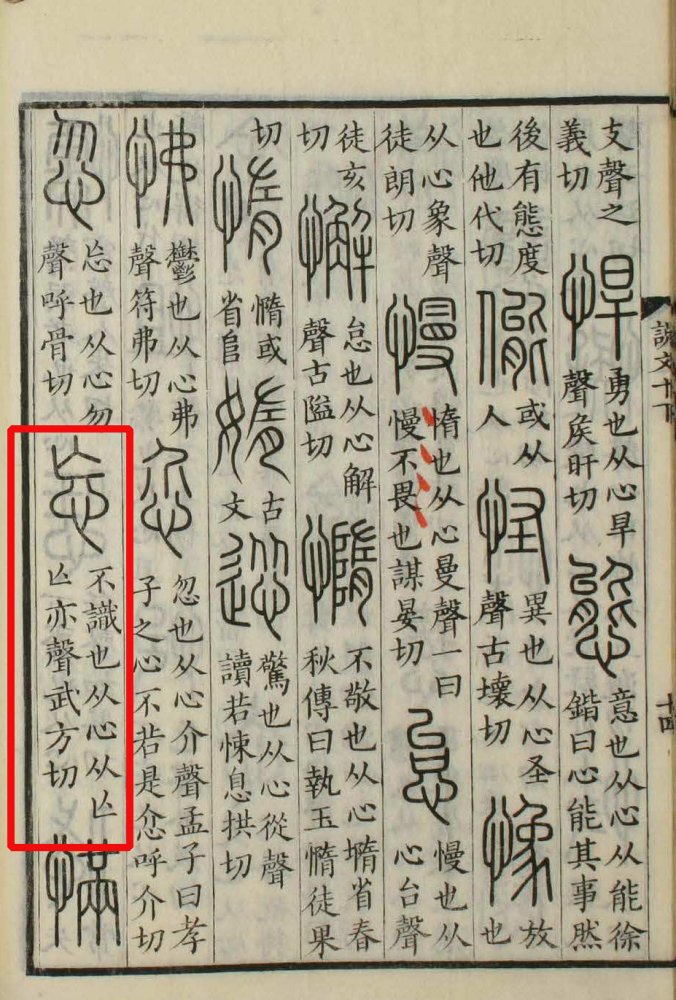 支聲之義切 悍 勇也从心旱聲矦旰切 態 意也从心从能徐鍇曰心能其事然
後有態度也他代切 㑷 或从人 怪 異也从心圣聲古壞切 𢠽 放也
从心象聲徒朗切 慢 惰也从心曼聲一曰慢不畏也謀晏切 怠 慢也从心台聲
徒亥切 懈 怠也从心解聲古隘切 憜 不敬也从心㙐省春秋傳曰執玉憜徒果
切 惰 憜或省𨸏 媠 古文 慫 驚也从心從聲讀若悚息拱切
怫 鬱也从心弗聲符弗切 忽也从心介聲孟子曰孝子之心不若是呼介切
忽 忘也从心勿聲呼骨切 忘 不識也从心从亾亾亦聲武方切 懣
說文十下
十四